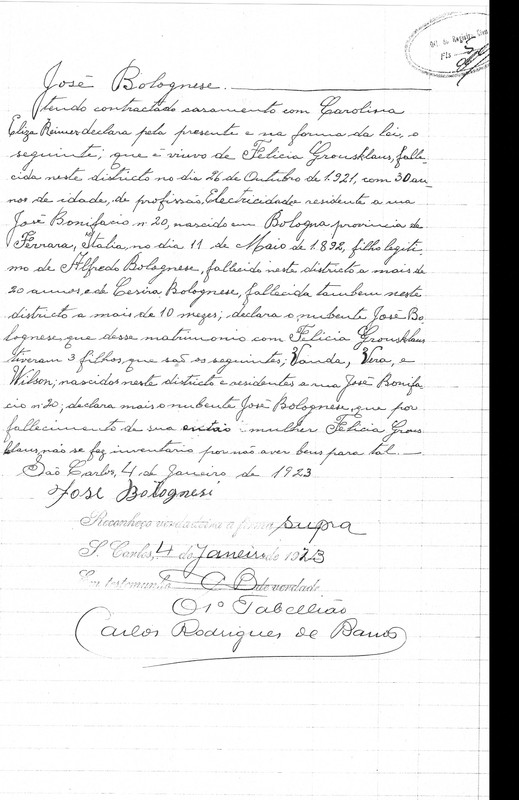 José Bolognese.
tendo contractado casamento com Carolina
Eliza Reimer declara pela presente e na forma da lei, o
seguinte; que é viuvo de Felicia Grousklaus, falle-
cida neste districto no dia 26 de Outubro de 1.921, com 30 an-
nos de idade, de profissão, Electricidade residente a rua
José Bonifacio nº 20, nascido em Bologna provincia de
Ferrara, Italia, no dia 11 de Maio de 1.892, filho legiti-
mo de Alfredo Bolognese, fallecido neste districto a mais de
20 annos, e de Cesira Bolognese, fallecida tambem neste
districto a mais de 10 mezes; declara o nubente José Bo-
lognese, que desse matrimonio com Felicia Grousklaus
tiveram 3 filhos, que são os seguintes; Vanda, Vera, e
Wilson; nascidos neste districto e residentes a rua José Bonifa-
cio nº 20; declara mais o nubente José Bolognese, que por
fallecimento de sua então mulher Felicia Grous-
klaus, não se fez inventario por não aver bens para tal.
São Carlos, 4 de Janeiro de 1923
José Bolognesi
Reconheço verdadeira a firma supra
S. Carlos, 4 de Janeiro de 1923
Em testemunho C B de verdade
O 1º Tabellião
Carlos Rodrigues de Barros